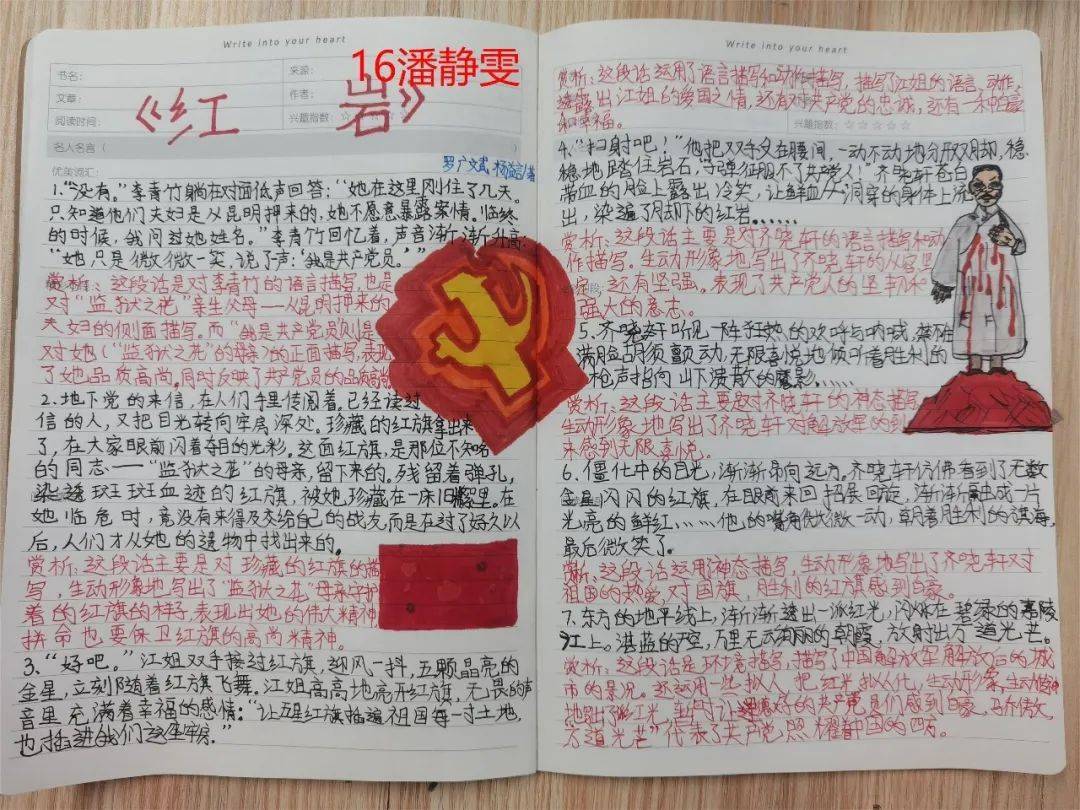 Write into your heart
16潘静雯
书名：
来源：
文章：
作者：
阅读时间：
兴趣指数：☆☆☆☆☆
《红 岩》
名人名言（
优美词汇：
罗广文斌 杨益言/著
1.“没有。”李青竹躺在对面低声回答：“她在这里刚住了几天。
只知道他们夫妇是从昆明押来的，她不愿意暴露案情。临终
的时候，我问过她姓名。”李青竹回忆着，声音渐渐升高：
“她只是微微一笑，说了声：‘我是共产党员。’”
赏析：这段话是对李青竹的语言描写，也是
对“监狱之花”亲生父母一从昆明押来的
夫妇的侧面描写。而“我是共产党员则是
对她（“监狱之花”的母亲）的正面描写，表现
了她品质高尚。同时反映了共产党员的品质高尚
2.地下党的来信，在人们手里传阅着。已经读过
信的人，又把目光转向牢房深处。珍藏的红旗拿出来
了，在大家眼前闪着夺目的光彩。这面红旗，是那位不知名
的同志——“监狱之花”的母亲，留下来的。残留着弹孔，
染透斑斑血迹的红旗，被她珍藏在一床旧棉絮里。在
她临危时，竟没有来得及交给自己的战友，而是在过了好久以
后，人们才从她的遗物中找出来的。
赏析：这段话主要是对珍藏的红旗的描
写，生动形象地写出了“监狱之花”母亲守护
着的红旗的样子，表现出她的伟大精神
拼命也要保卫红旗的高尚精神。
3.“好吧。”江姐双手接过红旗，迎风一抖，五颗晶亮的
金星，立刻随着红旗飞舞。江姐高高地亮开红旗，无畏的声
音里充满着幸福的感情：“让五星红旗插遍祖国每一寸土地，
也插进我们这座牢房。”
Write into your heart
赏析：这段话运用了语言描写和动作描写，描写了江姐的语言、动作，
出江姐的爱国之情，还有对共产党的忠诚，还有一种自豪
和幸福。
兴趣指数：☆☆☆☆☆
4.“扫射吧！”他把双手叉在腰间，一动不动地分开双脚，稳
稳地踏住岩石，“子弹征服不了共产党人！”齐晓轩苍白
带血的脸上露出冷笑，让鲜血从洞穿的身体上流
出，染遍了脚下的红岩……
赏析：这段话主要是对齐晓轩的语言描写和动
作描写。生动形象地写出了齐晓轩的从容坚
定，还有坚强。表现了共产党人的坚韧和
强大的意志。
5.齐晓轩听见一阵狂热的欢呼与呐喊，禁不住
满脸胡须颤动，无限喜悦地倾听着胜利的
枪声指向山下溃散的魔影……
赏析：这段话主要是对齐晓轩的神态描写
生动形象地写出了齐晓轩对解放军的到
来感到无限喜悦。
6.僵化中的目光，渐渐昂向远方。齐晓轩仿佛看到了无数
金星闪闪的红旗，在眼前来回招展回旋，渐渐融成一片
光亮的鲜红……他的嘴角微微一动，朝着胜利的旗海，
最后微笑了。
赏析：这段话运用神态描写，生动形象地写出了齐晓轩对
祖国的热爱，对国旗，胜利的红旗感到自豪。
7.东方的地平线上，渐渐透出一派红光，闪烁在碧绿的嘉陵
江上。湛蓝的天空，万里无云，绚丽的朝霞，放射出万道光芒。
赏析：这段话是环境描写，描写了中国解放军解放后的城
市的景况。还运用一些拟人，把红光拟人化，生动形象，
万道光芒”代表了共产党照耀着中国的四方。